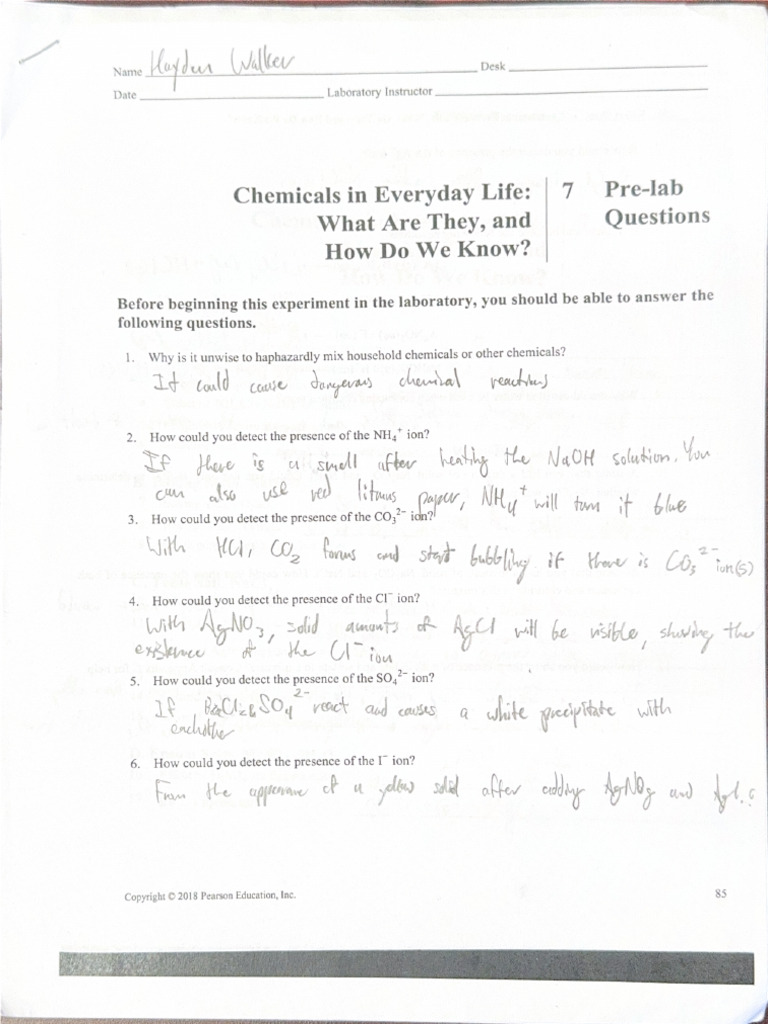 Name Hayden Walker Desk
Date Laboratory Instructor
Chemicals in Everyday Life:
What Are They, and
How Do We Know?
7 Pre-lab
Questions
Before beginning this experiment in the laboratory, you should be able to answer the
following questions.
1. Why is it unwise to haphazardly mix household chemicals or other chemicals?
It could cause dangerous chemical reactions
2. How could you detect the presence of the NH₄⁺ ion?
If there is a smell after heating the NaOH solution. You
can also use red litmus paper, NH₄⁺ will turn it blue
3. How could you detect the presence of the CO₃²⁻ ion?
With HCl, CO₂ forms and start bubbling if there is CO₃²⁻ ion(s)
4. How could you detect the presence of the Cl⁻ ion?
With AgNO₃, solid amounts of AgCl will be visible, showing the
existence of the Cl⁻ ion
5. How could you detect the presence of the SO₄²⁻ ion?
If BaCl₂ SO₄²⁻ react and causes a white precipitate with
eachother
6. How could you detect the presence of the I⁻ ion?
From the appearance of a yellow solid after adding AgNO₃ and
Copyright © 2018 Pearson Education, Inc.
85